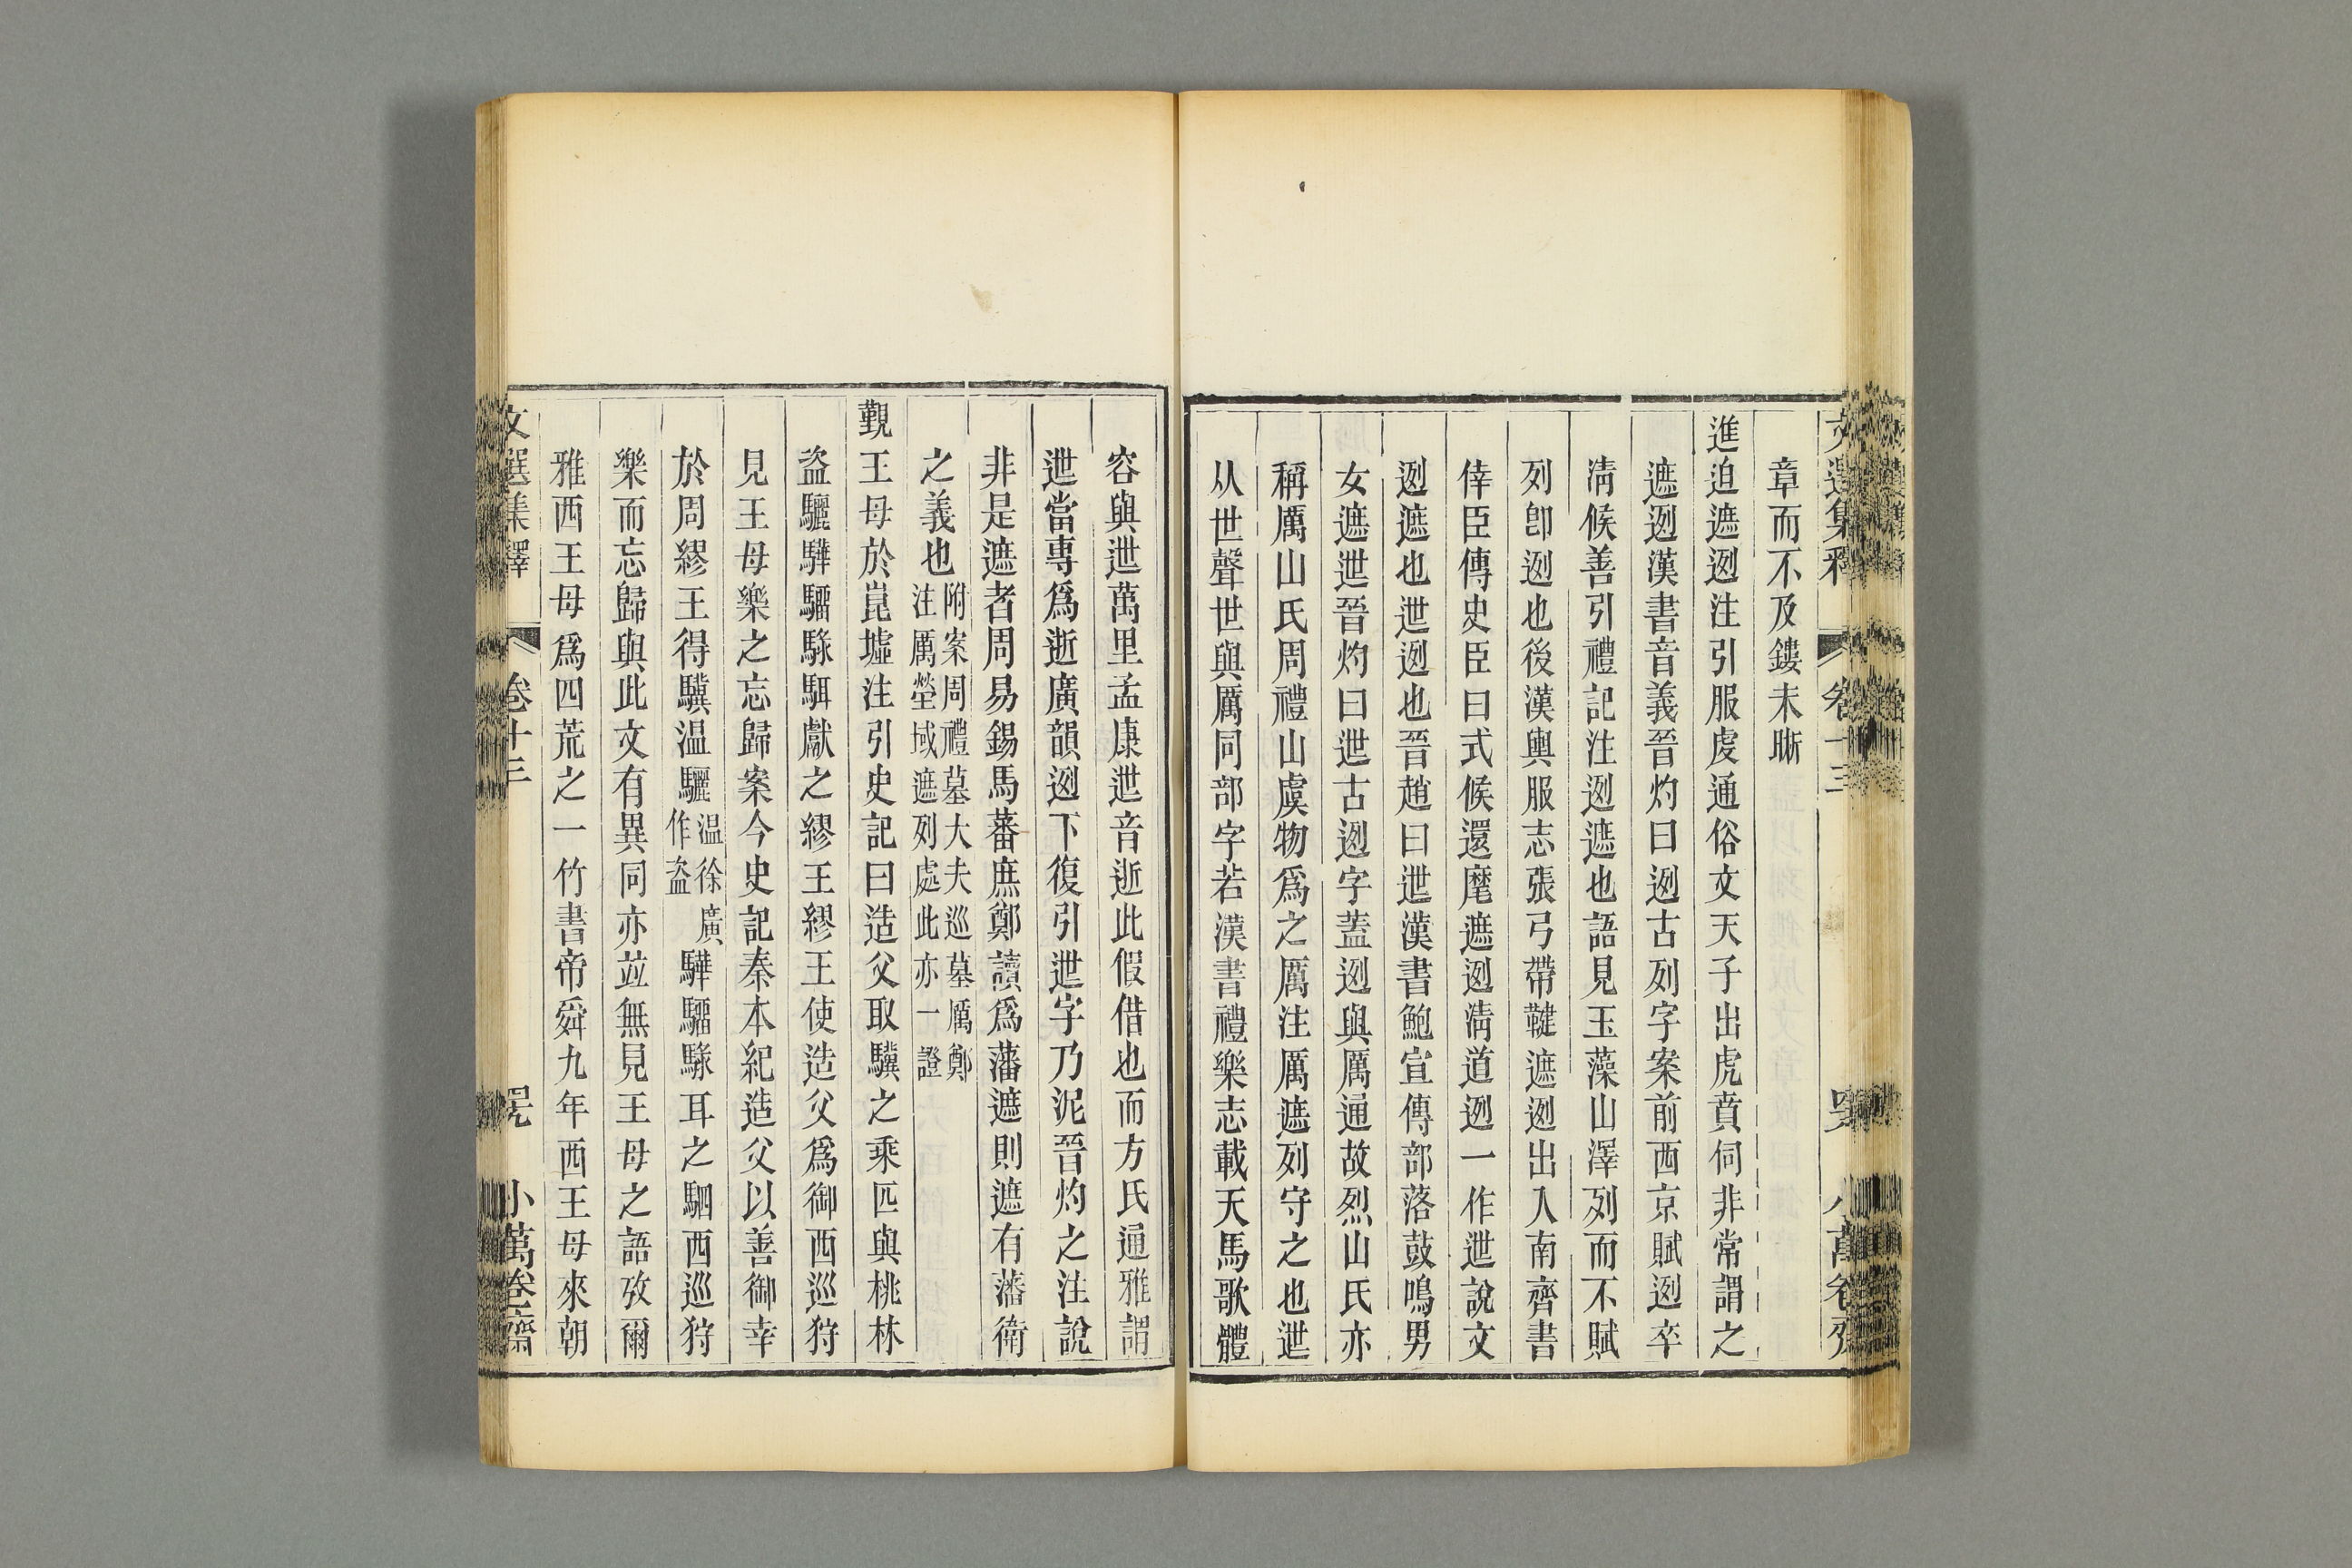 章而不及鏤未晣
進迫遮迾注引服虔通俗文天子出虎賁伺非常謂之
遮迾漢書音義晉灼曰迾古列字案前西京賦迾卒
淸候善引禮記注迾遮也語見玉藻山澤列而不賦
列卽迾也後漢輿服志張弓帶鞬遮迾出入南齊書
倖臣傳史臣曰式候還麾遮迾淸道迾一作迣說文
迾遮也迣迾也晉趙曰迣漢書鮑宣傳部落鼓鳴男
女遮迣晉灼曰迣古迾字蓋迾與厲通故烈山氏亦
稱厲山氏周禮山虞物爲之厲注厲遮列守之也迣
从世聲世與厲同部字若漢書禮樂志載天馬歌體
容與迣萬里孟康迣音逝此假借也而方氏通雅謂
迣當專爲逝廣韻迾下復引迣字乃泥晉灼之注說
非是遮者周易錫馬蕃庶鄭讀爲藩遮則遮有藩衛
之義也附案周禮墓大夫巡墓厲鄭
注厲塋域遮列處此亦一證
覲王母於崑墟注引史記曰造父取驥之乘匹與桃林
盗驪驊騮騄駬獻之繆王繆王使造父爲御西巡狩
見王母樂之忘歸案今史記秦本紀造父以善御幸
於周繆王得驥温驪温徐廣作盗驊騮騄耳之駟西巡狩
樂而忘歸與此文有異同亦竝無見王母之語攷爾
雅西王母爲四荒之一竹書帝舜九年西王母來朝
文選集釋
卷十三
小萬卷齋